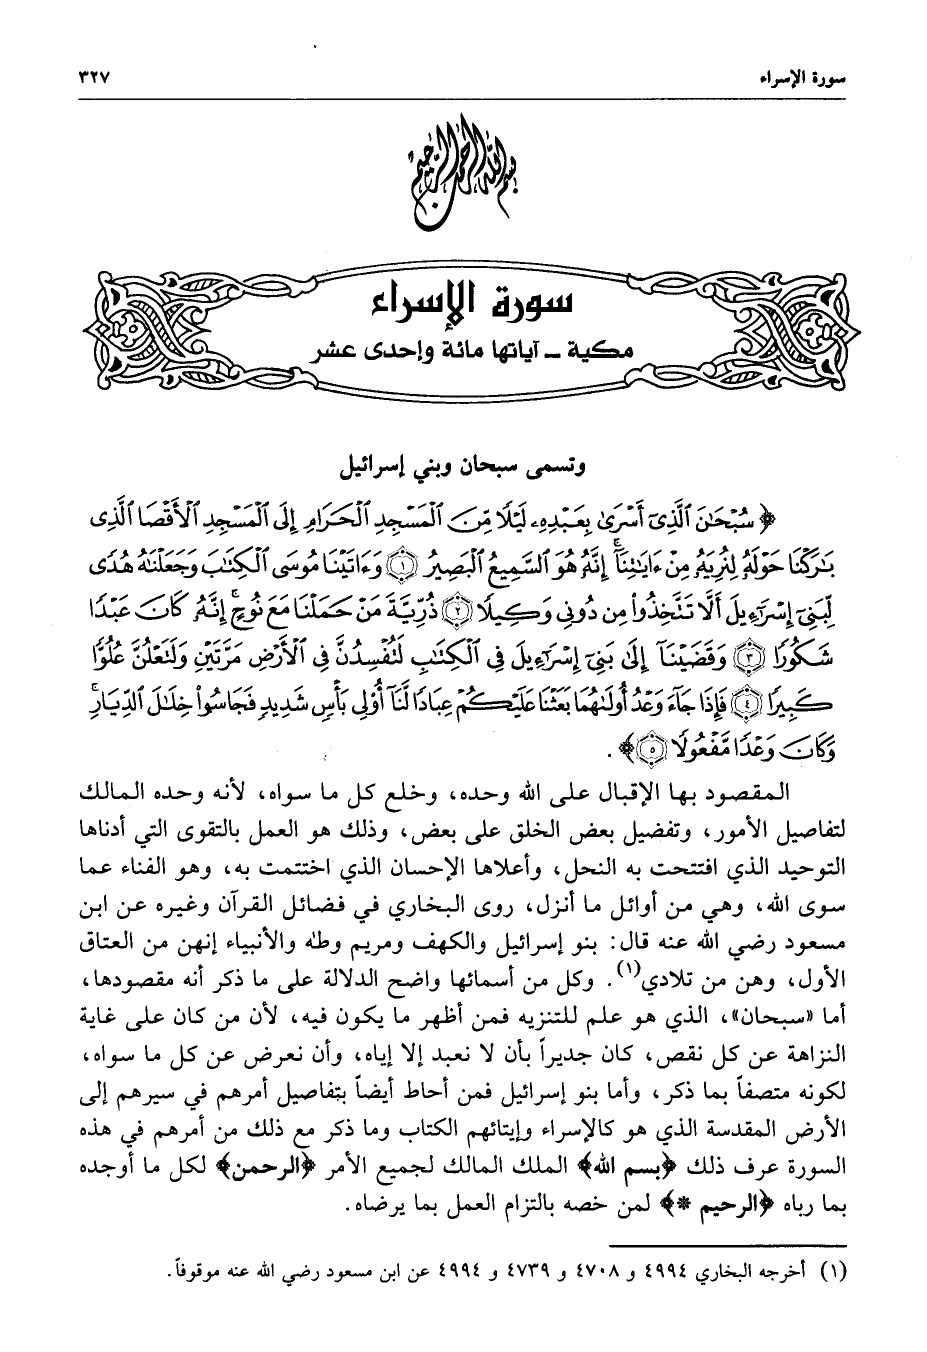 سورة الإسراء ٣٢٧
بسم الله الرحمن الرحيم
سورة الإسراء
مكية ـ آياتها مائة وإحدى عشر
وتسمى سبحان وبني إسرائيل
﴿ سُبْحَٰنَ ٱلَّذِىٓ أَسْرَىٰ بِعَبْدِهِۦ لَيْلًا مِّنَ ٱلْمَسْجِدِ ٱلْحَرَامِ إِلَى ٱلْمَسْجِدِ ٱلْأَقْصَا ٱلَّذِى
بَٰرَكْنَا حَوْلَهُۥ لِنُرِيَهُۥ مِنْ ءَايَٰتِنَآ ۚ إِنَّهُۥ هُوَ ٱلسَّمِيعُ ٱلْبَصِيرُ ۝١ وَءَاتَيْنَا مُوسَى ٱلْكِتَٰبَ وَجَعَلْنَٰهُ هُدًى
لِّبَنِىٓ إِسْرَٰٓءِيلَ أَلَّا تَتَّخِذُوا۟ مِن دُونِى وَكِيلًا ۝٢ ذُرِّيَّةَ مَنْ حَمَلْنَا مَعَ نُوحٍ ۚ إِنَّهُۥ كَانَ عَبْدًا
شَكُورًا ۝٣ وَقَضَيْنَآ إِلَىٰ بَنِىٓ إِسْرَٰٓءِيلَ فِى ٱلْكِتَٰبِ لَتُفْسِدُنَّ فِى ٱلْأَرْضِ مَرَّتَيْنِ وَلَتَعْلُنَّ عُلُوًّا
كَبِيرًا ۝٤ فَإِذَا جَآءَ وَعْدُ أُولَىٰهُمَا بَعَثْنَا عَلَيْكُمْ عِبَادًا لَّنَآ أُو۟لِى بَأْسٍ شَدِيدٍ فَجَاسُوا۟ خِلَٰلَ ٱلدِّيَارِ ۚ
وَكَانَ وَعْدًا مَّفْعُولًا ۝٥ ﴾ .
المقصود بها الإقبال على الله وحده، وخلع كل ما سواه، لأنه وحده المالك
لتفاصيل الأمور، وتفضيل بعض الخلق على بعض، وذلك هو العمل بالتقوى التي أدناها
التوحيد الذي افتتحت به النحل، وأعلاها الإحسان الذي اختتمت به، وهو الفناء عما
سوى الله، وهي من أوائل ما أنزل، روى البخاري في فضائل القرآن وغيره عن ابن
مسعود رضي الله عنه قال: بنو إسرائيل والكهف ومريم وطه والأنبياء إنهن من العتاق
الأول، وهن من تلادي(١). وكل من أسمائها واضح الدلالة على ما ذكر أنه مقصودها،
أما «سبحان»، الذي هو علم للتنزيه فمن أظهر ما يكون فيه، لأن من كان على غاية
النزاهة عن كل نقص، كان جديراً بأن لا نعبد إلا إياه، وأن نعرض عن كل ما سواه،
لكونه متصفاً بما ذكر، وأما بنو إسرائيل فمن أحاط أيضاً بتفاصيل أمرهم في سيرهم إلى
الأرض المقدسة الذي هو كالإسراء وإيتائهم الكتاب وما ذكر مع ذلك من أمرهم في هذه
السورة عرف ذلك ﴿بسم الله﴾ الملك المالك لجميع الأمر ﴿الرحمن﴾ لكل ما أوجده
بما رباه ﴿الرحيم *﴾ لمن خصه بالتزام العمل بما يرضاه.
(١) أخرجه البخاري ٤٩٩٤ و ٤٧٠٨ و ٤٧٣٩ و ٤٩٩٤ عن ابن مسعود رضي الله عنه موقوفاً.